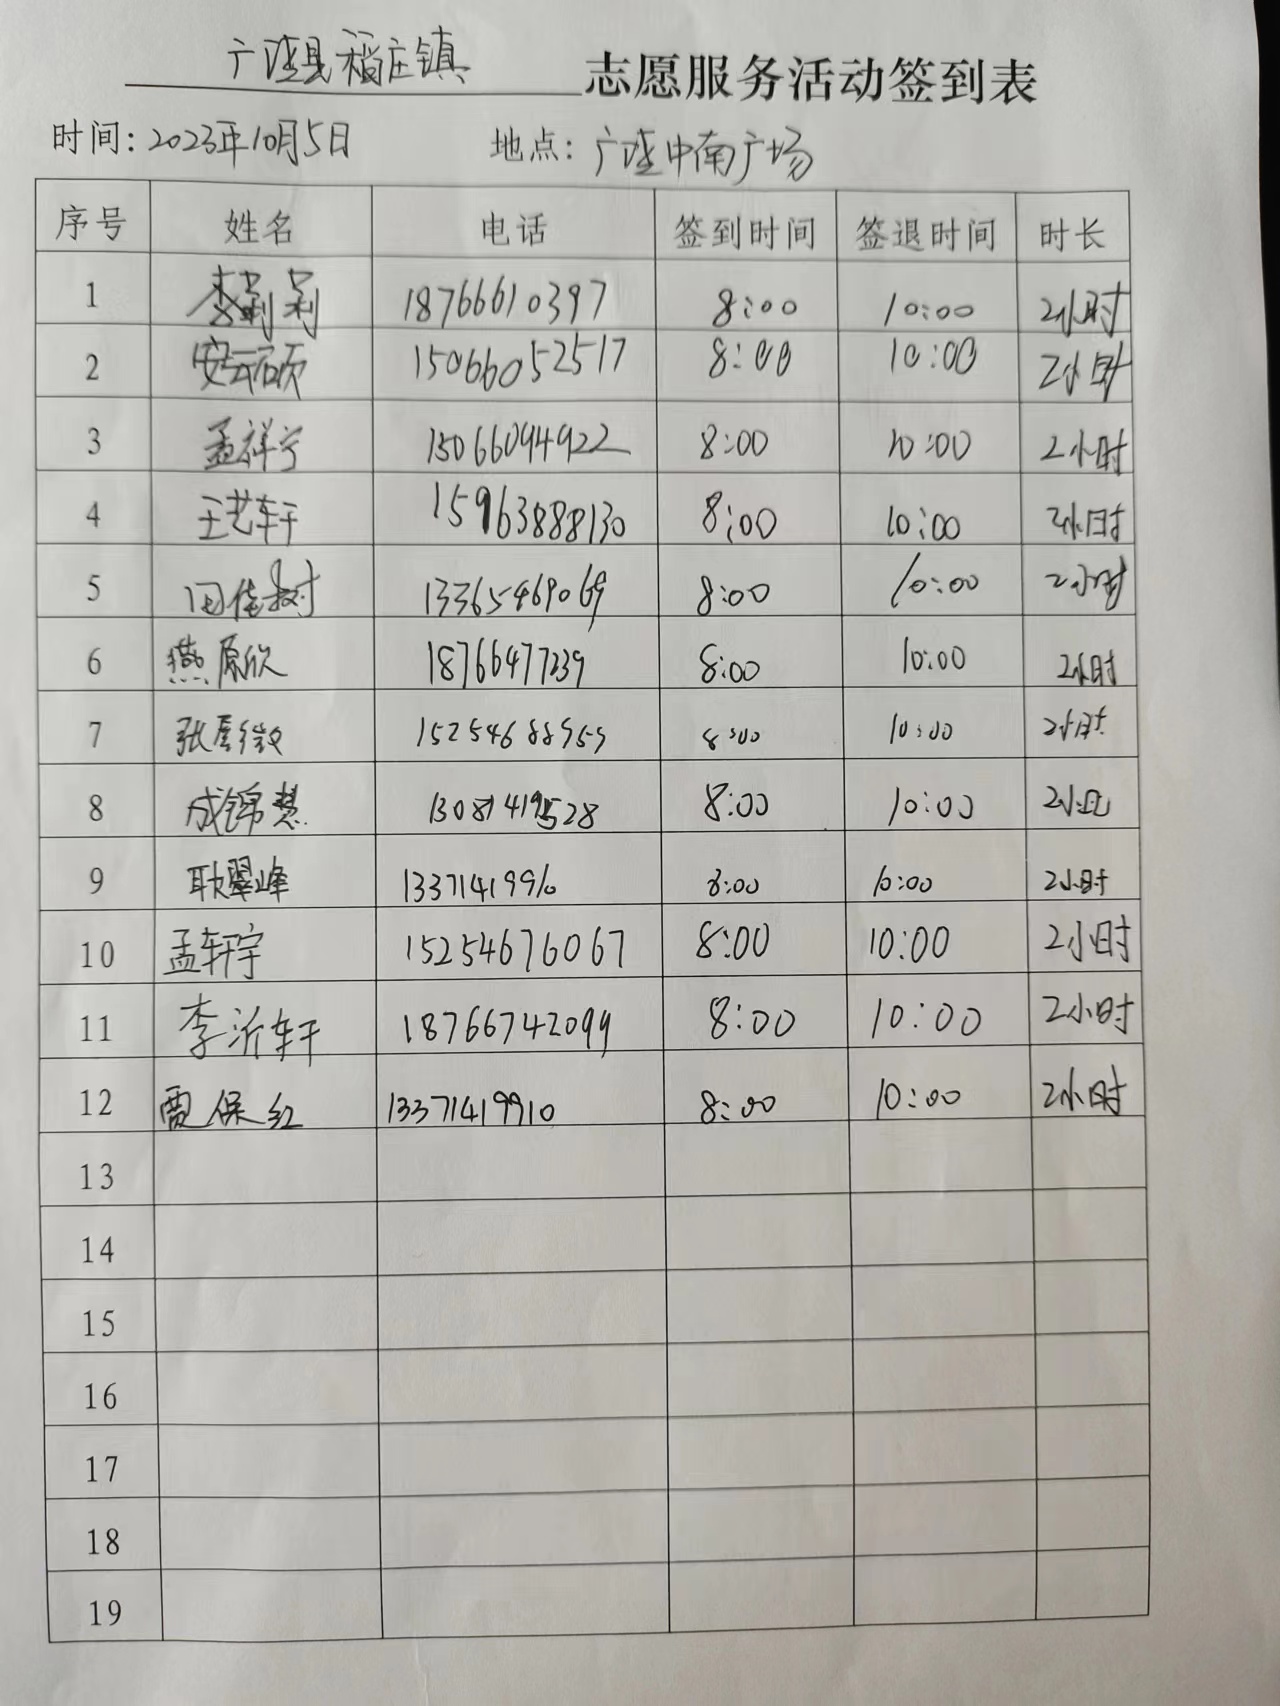 广饶县稻庄镇 志愿服务活动签到表
时间：2023年10月5日 地点：广饶中南广场
序号 姓名 电话 签到时间 签退时间 时长
1 18766610397 8:00 10:00 2小时
2 安云硕 15066052517 8:00 10:00 2小时
3 孟祥宁 15066094922 8:00 10:00 2小时
4 王艺轩 15963888130 8:00 10:00 2小时
5 田佳树 13365469069 8:00 10:00 2小时
6 燕原欣 18766477239 8:00 10:00 2小时
7 15254688959 8:00 10:00 2小时
8 成锦慧 13081419528 8:00 10:00 2小时
9 耿翠峰 13371419910 8:00 10:00 2小时
10 孟轩宇 15254676067 8:00 10:00 2小时
11 李沂轩 18766742099 8:00 10:00 2小时
12 贾保红 13371419910 8:00 10:00 2小时
13
14
15
16
17
18
19